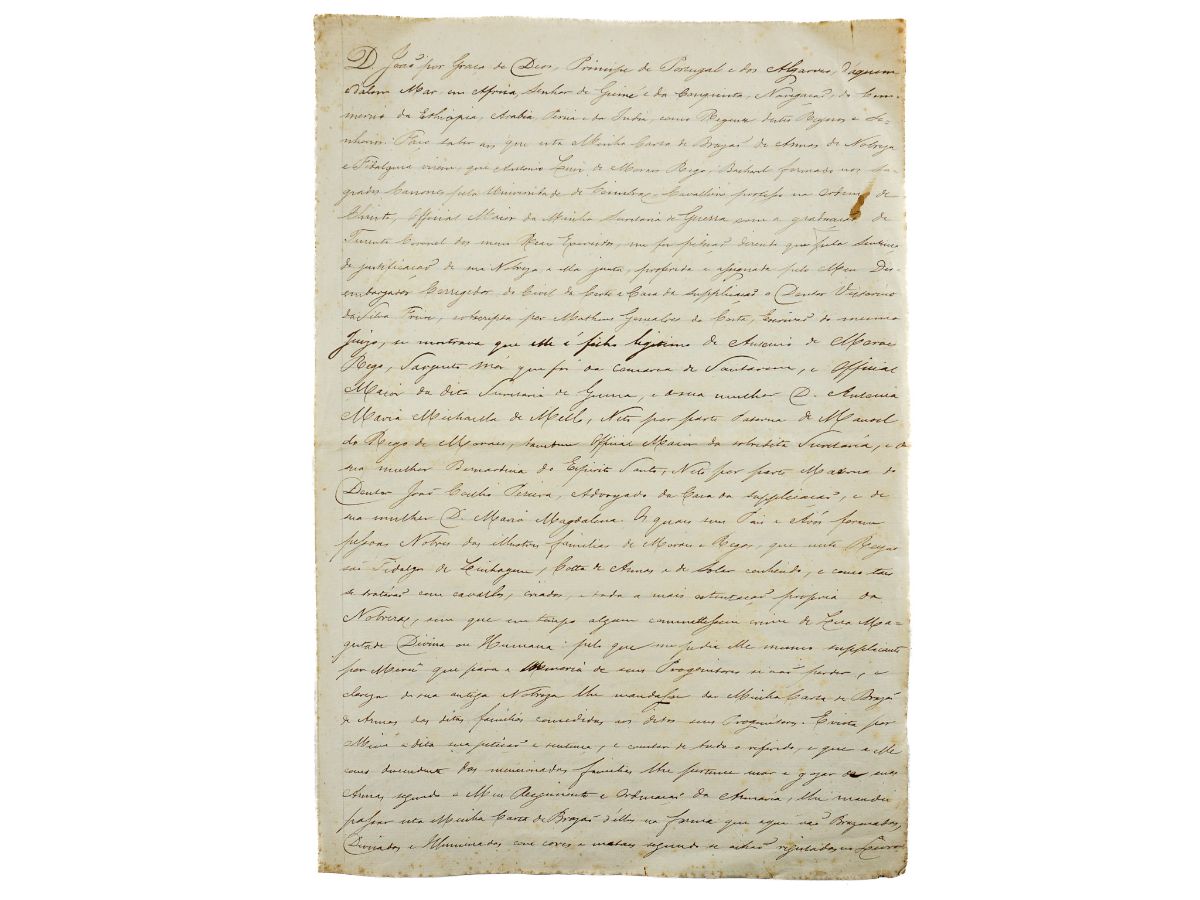 D. João por Graça de Deos, Principe de Portugal e dos Algarves, d'aquem
e dalem Mar, em Africa, Senhor de Guiné e da Conquista, Navegação, do Com-
mercio da Ethiopia, Arabia, Persia e da India, como Regente destes Reynos e Se-
nhorios: Faço saber aos que esta Minha Carta de Brazaõ de Armas de Nobreza
e Fidalguia virem, que Antonio Luiz de Moraes Rego, Bacharel formado nos Sa-
grados Canones pela Universidade de Coimbra, Cavalleiro professo na Ordem de
Christo, Official Maior da Minha Secretaria de Guerra com a graduaçaõ de
Tenente Coronel dos meus Reaes Exercitos, me fez petiçaõ dizendo que pela Sentença
de justificaçaõ de sua Nobreza a ella junta, proferida e assignada pelo Meu Des-
embargador Corregedor do Civel da Corte e Casa da Supplicaçaõ o Doutor Victorino
da Silva Freire, sobscripta por Matheus Gonsalves da Costa, Escrivaõ do mesmo
Juizo, se mostrava que elle é filho legitimo de Antonio de Moraes
Rego, Sargento mór que foi da Comarca de Santarem, e Official
Maior da dita Secretaria de Guerra, e de sua mulher D. Antonia
Maria Michaella de Mello, Neto por parte Paterna de Manoel
do Rego de Moraes, tambem Official Maior da sobredita Secretaria, e de
sua mulher Bernardina do Espirito Santo, Neto por parte Materna do
Doutor João Coelho Pereira, Advogado da Casa da Supplicaçaõ, e de
sua mulher D. Maria Magdalena. Os quais seus Pais e Avós foram
pessoas Nobres das illustres familias de Moraes e Regos, que neste Reyno
saõ Fidalgos de Linhagem, Cotta de Armas e de Solar conhecido, e como taes
se trataraõ com cavallos, criados, e toda a mais ostentaçaõ propria da
Nobreza, sem que em tempo algum commettessem crime de Lesa Ma-
gestade Divina ou Humana: pelo que me pedia elle mesmo supplicante
por Mercê que para a Memoria de seus Progenitores se naõ perder, e
clareza de sua antiga Nobreza lhe mandasse dar Minha Carta de Brazaõ
de Armas das ditas familias concedidas aos ditos seus Progenitores. E vista por
Mim a dita sua petiçaõ e sentença, e constar de tudo o referido, e que a elle
como descendente das mencionadas familias lhe pertence usar e gozar de suas
Armas, segundo o Meu Regimento e Ordenaçaõ da Armaria, lhe mandei
passar esta Minha Carta de Brazaõ dellas na forma que aqui vaõ Brazonadas,
Divisadas e Illuminadas com cores e metaes segundo se achaõ registadas no Livro